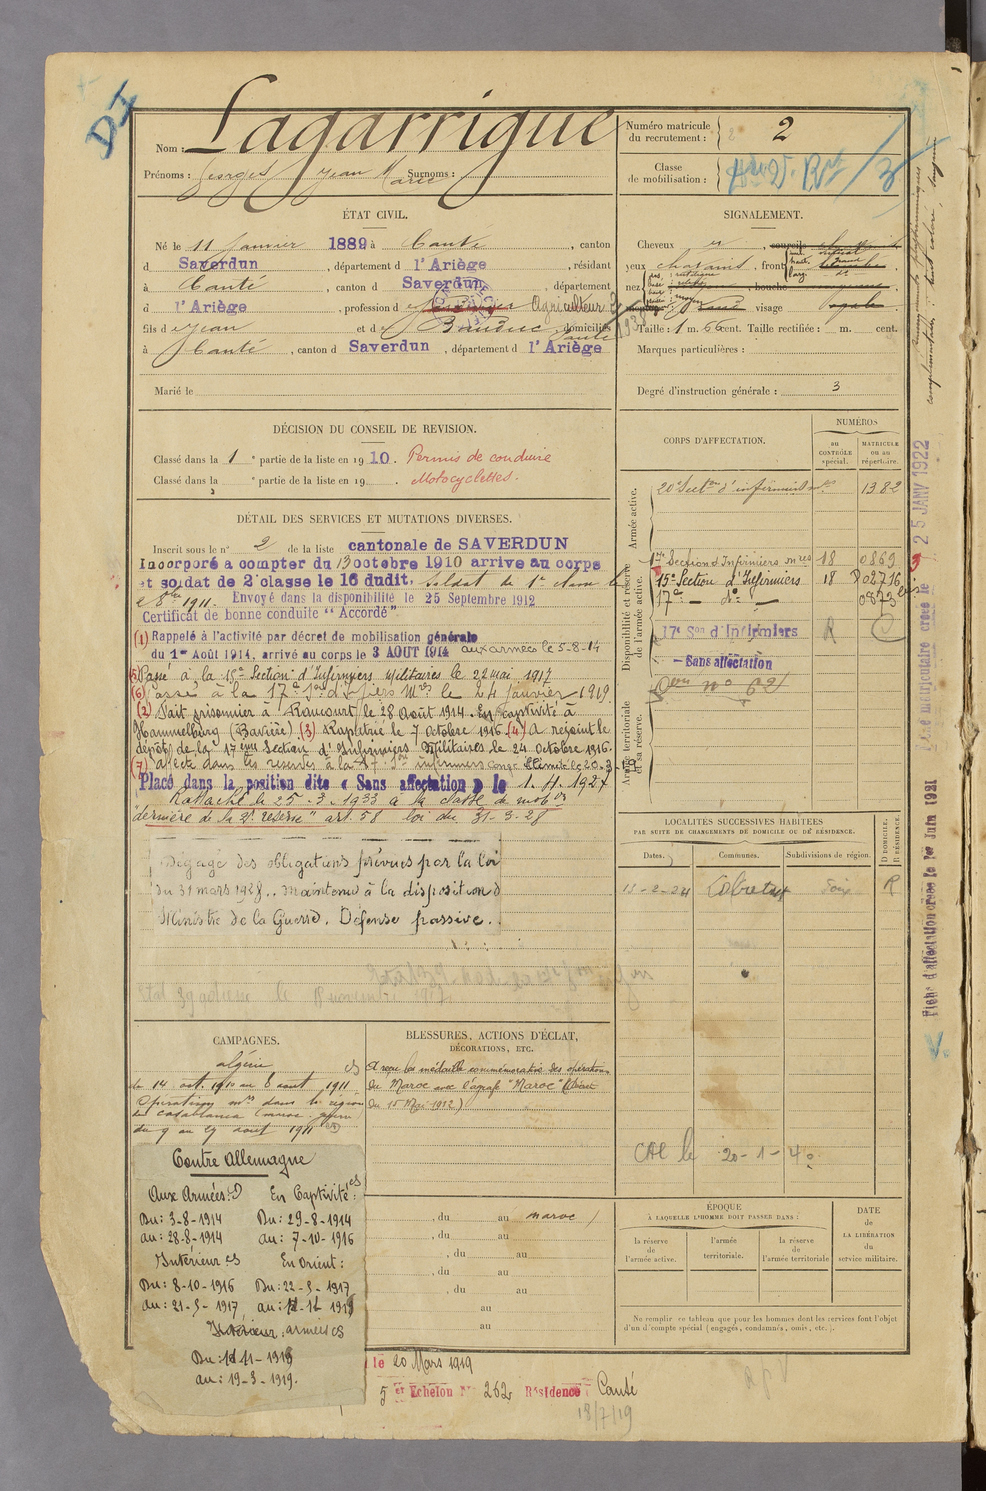 DI
Nom : Lagarrigue
Prénoms : Georges Jean Marie Surnoms :
Numéro matricule du recrutement : 2
Classe de mobilisation :
ÉTAT CIVIL.
Né le 11 Janvier 1889 à Canté, canton
d Saverdun, département d l'Ariège, résidant
à Canté, canton d Saverdun, département
d l'Ariège, profession d Agriculteur
fils d Jean et d Bauduc, domiciliés
à Canté, canton d Saverdun, département d l'Ariège
Marié le
SIGNALEMENT.
Cheveux, sourcils
yeux châtains, front
nez, bouche
visage
Taille : 1 m. 66 cent. Taille rectifiée : m. cent.
Marques particulières :
Degré d'instruction générale : 3
DÉCISION DU CONSEIL DE REVISION.
Classé dans la 1 e partie de la liste en 1910. Permis de conduire
Classé dans la e partie de la liste en 19 . Motocyclettes.
DÉTAIL DES SERVICES ET MUTATIONS DIVERSES.
Inscrit sous le n° 2 de la liste cantonale de SAVERDUN
Incorporé à compter du 13 octobre 1910 arrivé au corps
et soldat de 2e classe le 16 dudit. Soldat de 1e classe le
1911. Envoyé dans la disponibilité le 25 Septembre 1912
Certificat de bonne conduite "Accordé"
(1) Rappelé à l'activité par décret de mobilisation générale
du 1er Août 1914, arrivé au corps le 3 AOUT 1914 aux armées le 5-8-14
(5) Passé à la 15e Section d'Infirmiers Militaires le 22 mai 1917
(6) Passé à la 17e Son d'Infiers Mres le 24 janvier 1919
(2) Fait prisonnier à Raucourt le 28 Août 1914. En captivité à
Hammelburg (Bavière) (3) Rapatrié le 7 Octobre 1916 (4) a rejoint le
dépôt de la 17ème Section d'Infirmiers Militaires le 24 Octobre 1916.
(7) affecté dans les réserves à la 17e Son infirmiers congé illimité le 20-3-19
Placé dans la position dite « Sans affectation » le 1. 11. 1927
Rattaché le 25-3-1933 à la classe de mobon
"dernière de la 2e réserve" art. 58 loi du 31-3-28
Dégagé des obligations prévues par la loi
du 31 mars 1928.. maintenu à la disposition d
Ministre de la Guerre. Défense passive.
CORPS D'AFFECTATION.
NUMÉROS
au CONTRÔLE spécial.
MATRICULE ou au répertoire.
Armée active.
20e Secton d'infirmiers 1382
Disponibilité et réserve de l'armée active.
1re Section d'Infirmiers mres 18 0869
15e Section d'Infirmiers 18 02716
17e — do — 0873
17e Son d'Infirmiers R
— Sans affectation
Armée territoriale et sa réserve.
LOCALITÉS SUCCESSIVES HABITÉES
PAR SUITE DE CHANGEMENTS DE DOMICILE OU DE RÉSIDENCE.
Dates. Communes. Subdivisions de région. D DOMICILE. R RÉSIDENCE.
11-2-24 Foix R
CAMPAGNES.
algérie
du 14 oct. 1910 au 8 aout 1911
Opérations mres dans la région
de Casablanca (maroc)
du 9 au 29 aout 1911
BLESSURES, ACTIONS D'ÉCLAT,
DÉCORATIONS, ETC.
A reçu la médaille commémorative des opérations
du Maroc avec l'agrafe "Maroc"
du 15 Mai 1912)
Contre Allemagne
Aux Armées : En Captivité :
Du : 3-8-1914 Du : 29-8-1914
au : 28-8-1914 au : 7-10-1916
Intérieur En Orient :
Du : 8-10-1916 Du : 22-5-1917
au : 21-5-1917
Intérieur, armées
au : 19-3-1919.
, du au maroc
, du au
, du au
, du au
, du au
au
au
CAE le 20-1-40
ÉPOQUE
À LAQUELLE L'HOMME DOIT PASSER DANS :
la réserve de l'armée active.
l'armée territoriale.
la réserve de l'armée territoriale
DATE de LA LIBÉRATION du service militaire.
Ne remplir ce tableau que pour les hommes dont les services font l'objet
d'un décompte spécial (engagés, condamnés, omis, etc.).
le 20 Mars 1919
5 er Echelon N° 262 Résidence : Canté
18/7/19
25 JANV 1922
Fiche d'affectation créée le 1er Juin 1921